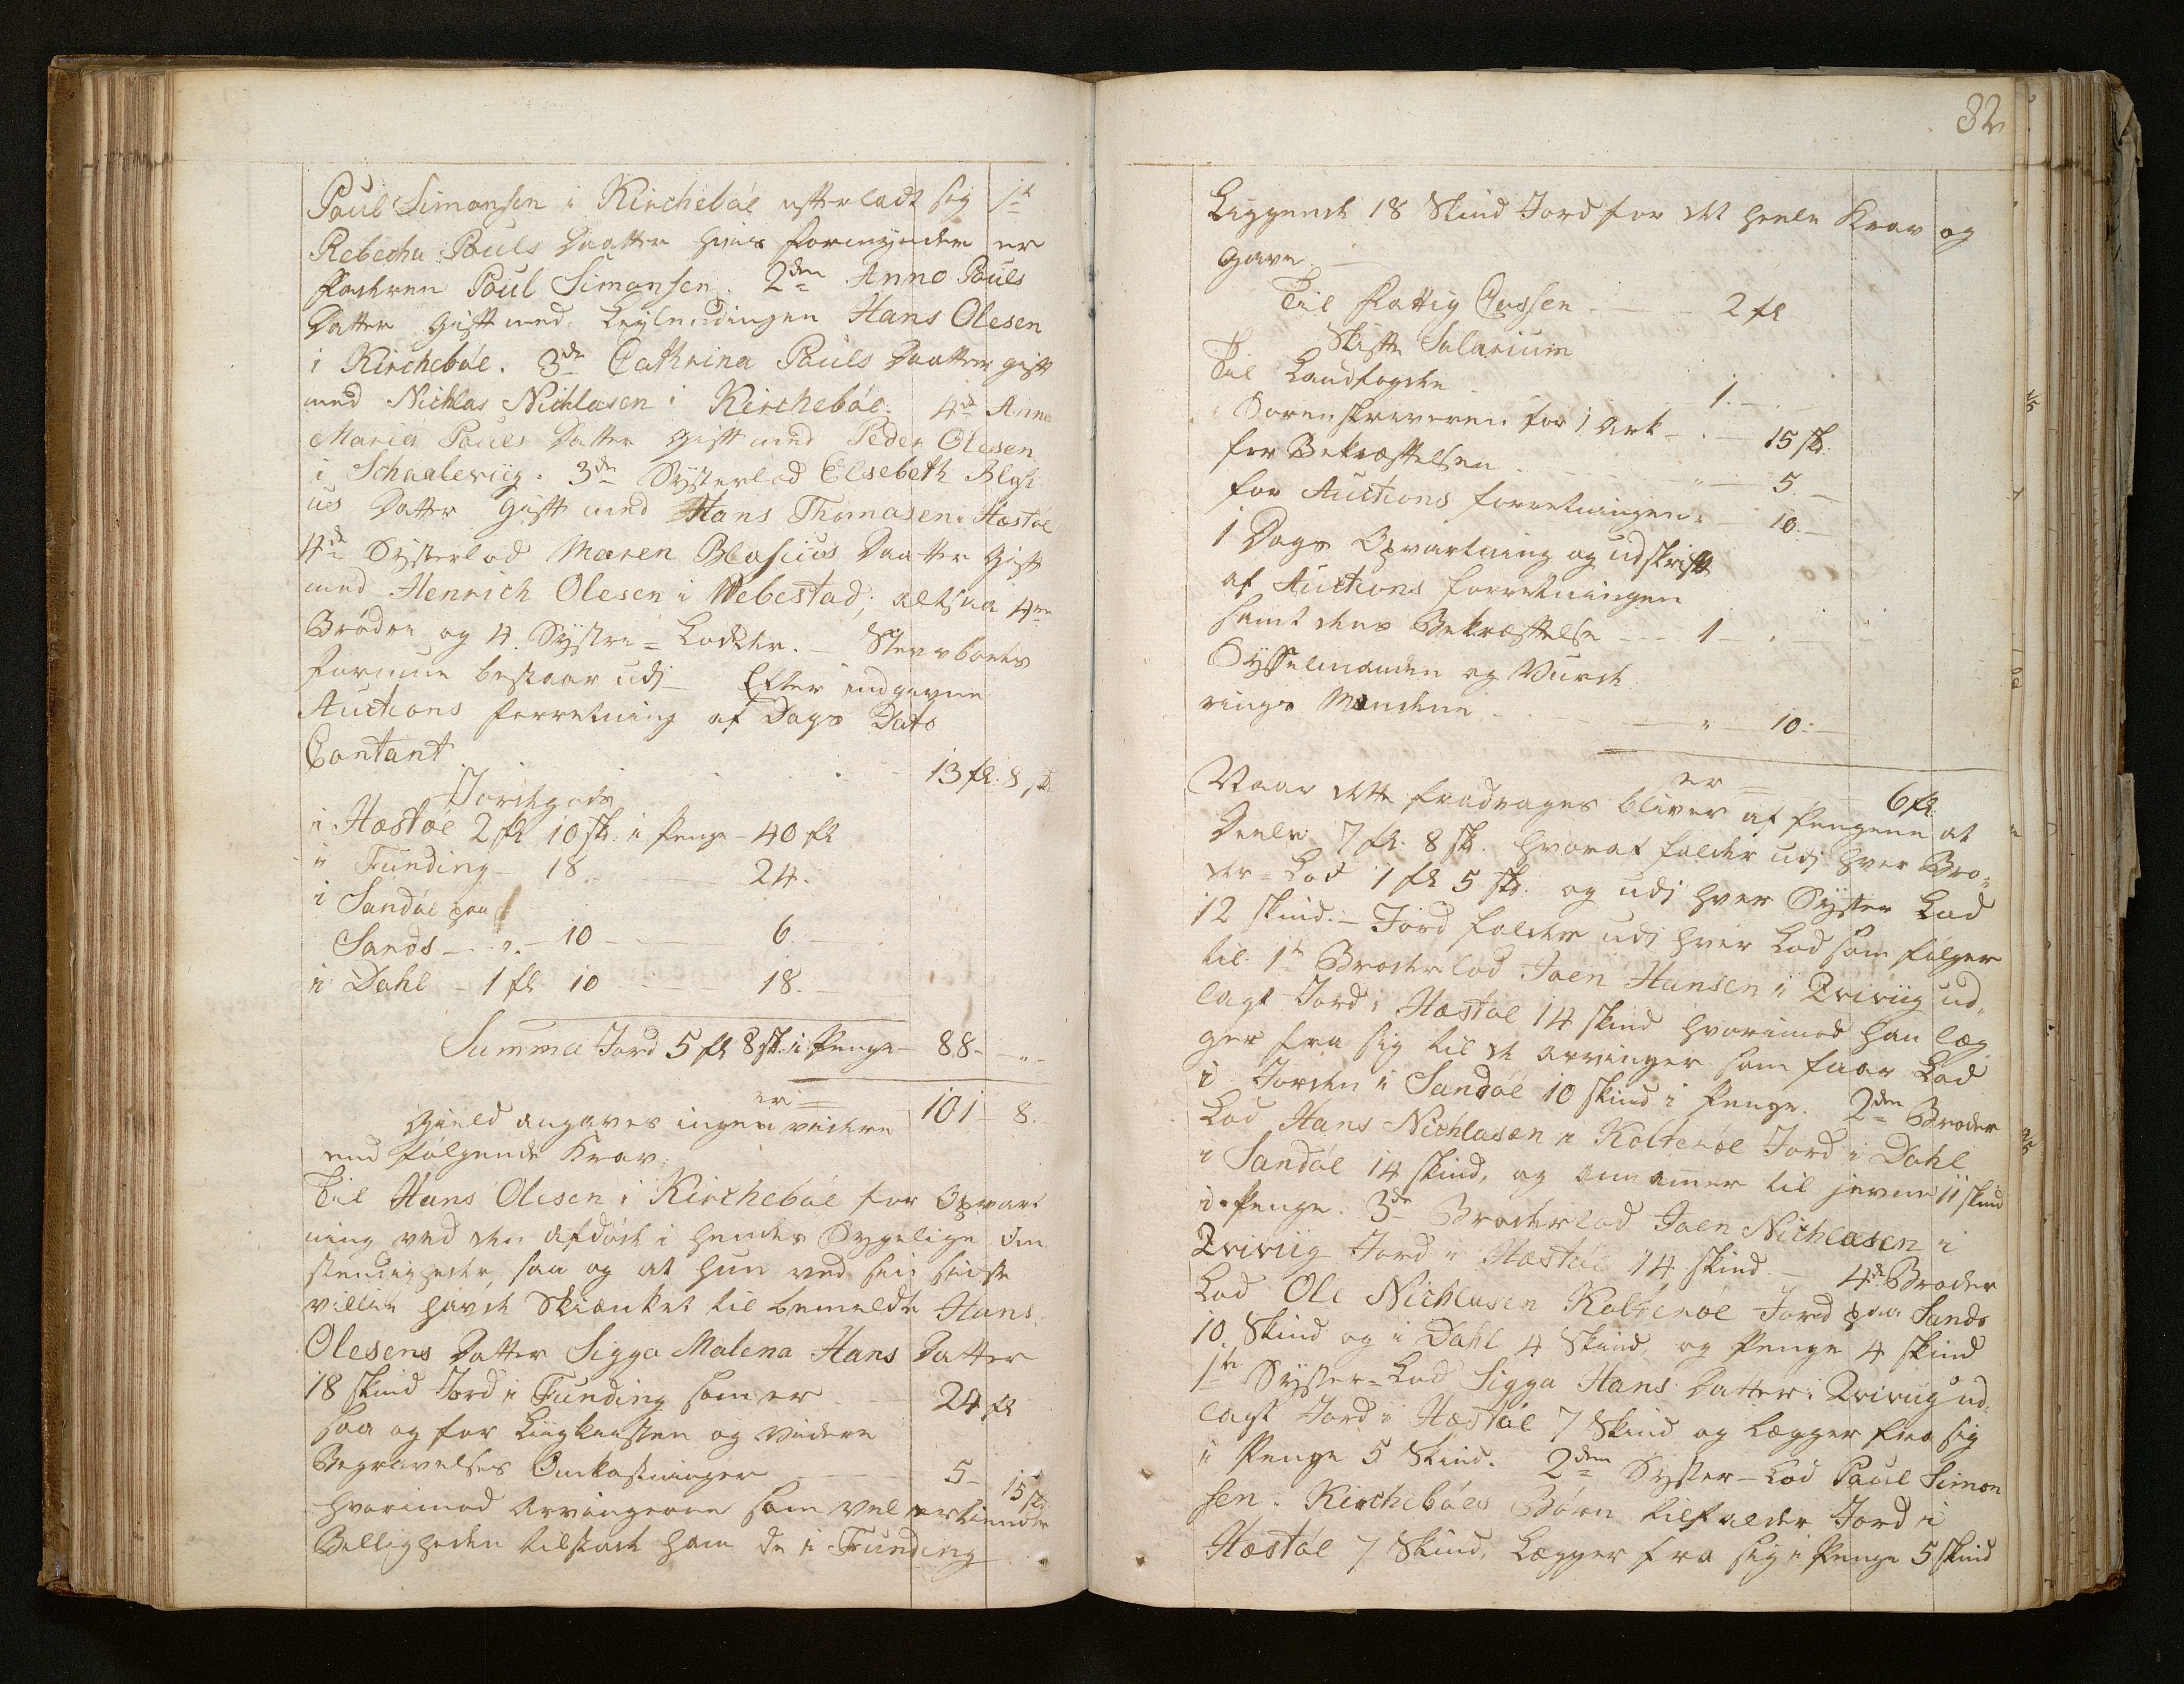 Poul Simonsen i Kirchebøe efterladt sig 1te
Rebecha Pouls Daatter hvis formynder er
faderen Poul Simonsen. 2den Anne Pouls
Datter gift med Leylendingen Hans Olesen
i Kirchebøe. 3de Cathrina Pouls Daatter gift
med Nichlas Nichlasen i Kirchebøe. 4de Anna
Maria Pouls Datter gift med Peder Olesen
i Schaalevüg. 3de Systerlod Elsebeth Blasi
us Datter gift med Hans Thomasen i Hæstøe
4de Systerlod Maren Blasius Daatter gift
med Henrich Olesen i Webestad; altsaa 4re
Brødre og 4. Systre=Lodder. – Stervboets
formue bestaar udj – Efter indgivne
Auctions forretning af Dags Dato
Contant . . . 13 fl: 8 sk
Jordegods
i Hæstøe 2 fl 10 sk. i Penge – 40 fl
i Funding – 18 – 24.
i Sandøe paa
Sands – „ – 10 – 6. –
i Dahl – 1 fl 10 – 18. –
Summa Jord 5 fl 8 sk. i Penge – 88 – „ –
er = 101 – 8.
Gield angaves ingen videre
end følgende Krav.
Til Hans Olesen i Kirchebøe for Opvart
ning ved den afdøde i hendes Sygelige Om
stendigheder, saa og at hun ved sin sidste
villie havde Skienket til bemeldte Hans
Olesens Datter Sigga Malena Hans Datter
18 skind Jord i Funding som er – 24 fl
saa og for Liigkisten og videre
Begravelses Omkostninger – 5 – 15 sk
hvorimod Arvingerne som vel fortiendte
Billigheden tilstode ham de i Funding
82
Liggende 18 Skind Jord for det heele Krav og
gave. –
Til Fattig Cassen – 2 fl
Skifte Salarium
Til Landfogden – 1. –
Sorenskriveren for 1 Ark – „ – 15 sk.
for Bekræftelsen – „ – 5. –
for Auctions forretningen „ – 10. –
1 Dags Opvartning og udskrift
af Auctions forretningen
samt dens Bekræftelse – 1 – „
Sysselmanden og Vurde
rings Mændene – „ – 10. –
er = 6 fl.
Naar dette fradrages bliver af Pengene at
Deele 7 fl: 8 sk. hvoraf falder udj hver Bro=
der=Lod 1 fl 5 sk. og udj hver Syster Lod
12 skind. – Jord falder udj hver Lod som følger
til 1te Broderlod Joen Hansen i Qvivüg ud„
lagt Jord i Hæstøe 14 skind hvorimod han læg
ger fra sig til de arvinger som faar Lod
i Jorden i Sandøe 10 skind i Penge. 2den Broder
Lod Hans Nichlasen i Kolterøe Jord i Dahl
i Sandøe 14 skind, og annammer til jevne 11 skind
i Penge. 3de Broderlod Joen Nichlasen i
Qvivüg Jord i Hæstøe 14 skind – 4de Broder
Lod Ole Nichlasen Kolterøe Jord paa Sands
10. Skind og i Dahl 4 Skind, og Penge 4 skind
1te Syster=Lod Sigga Hans Datter i Qvivüg ud„
lagt Jord i Hæstøe 7 Skind og Lægger fra sig
i Penge 5 Skind. 2den Syster=Lod Poul Simon
sen i Kirchebøes Børn tilfalder Jord i
Hæstøe 7 Skind, Lægger fra sig i Penge 5 skind